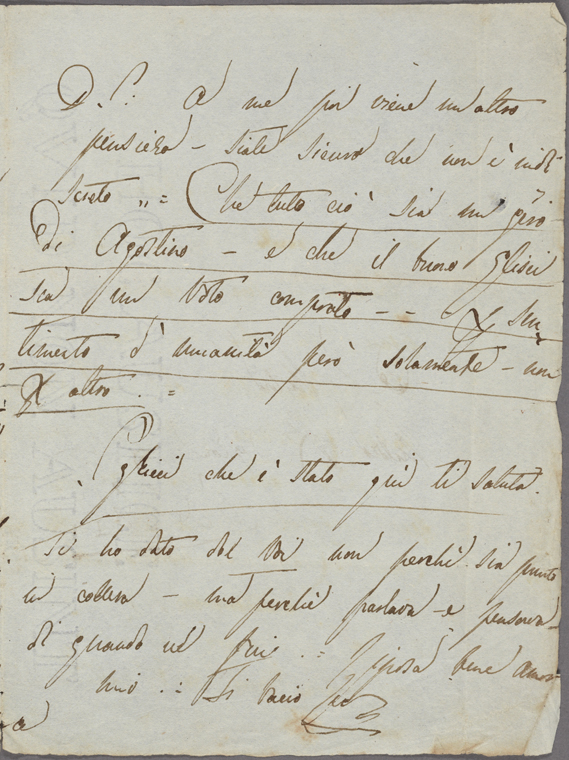 P. S. A me poi viene un altro
pensiero - siate sicuro che non è indi-
screto „ = Che tutto ciò sia un giro
di Agostino - e che il buono Ghicci
sia un voto comprato - - X sen-
timento d'umanità però solamente - non
X altro . =
Ghicci che è stato qui ti saluta.
Ti ho dato del Voi non perchè sia punto
in collera - ma perchè parlava e pensava
di quando
mio . = Ti bacio